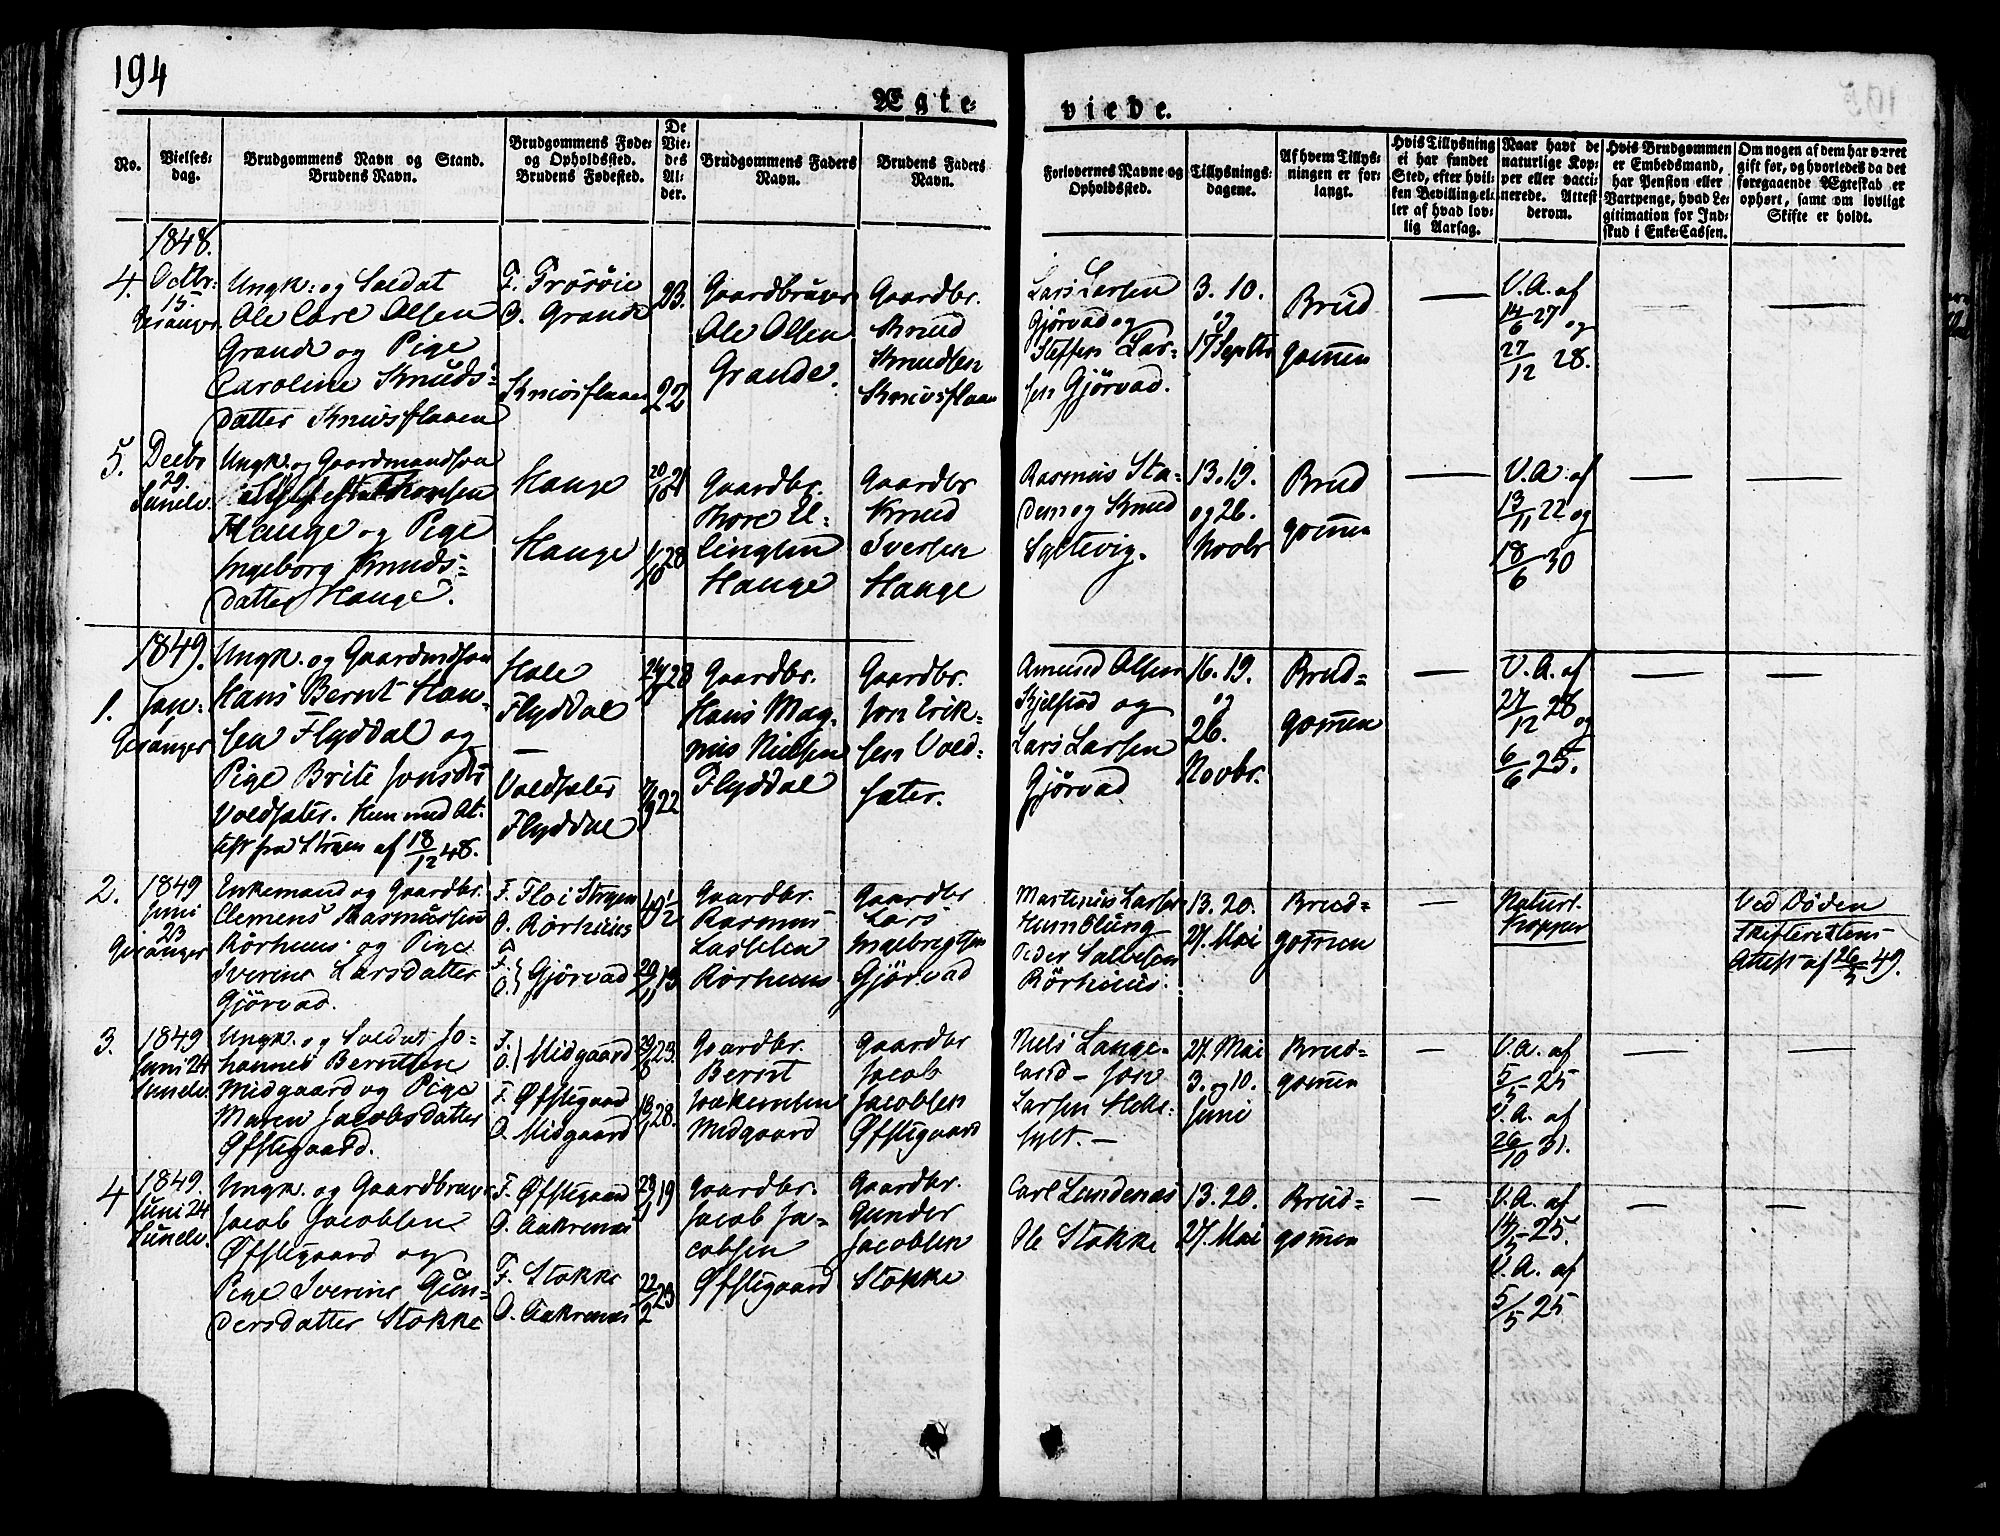 194
Ægte-
viede.
No.
Vielses-
dag.
Brudgommens Navn og Stand.
Brudens Navn.
Brudgommens Føde-
og Opholdssted.
Brudens Fødested.
De
Vie-
des
Al-
der.
Brudgommens Faders
Navn.
Brudens Faders
Navn.
Forlovernes Navne og
Opholdssted.
Tillysnings-
dagene.
Af hvem Tillys-
ningen er for-
langt.
Hvis Tillysning
ei har fundet
Sted, efter hvil-
ken Bevilling el-
ler af hvad lov-
lig Aarsag.
Naar havt de
naturlige Kop-
per eller vacci-
nerede. Attest
derom.
Hvis Brudgommen
er Embedsmand,
har Pension eller
Vartpenge, hvad Le-
gitimation for Ind-
skud i Enke-Cassen.
Om nogen af dem har været
gift før, og hvorledes da det
foregaaende Ægteskab er
ophørt, samt om lovligt
Skifte er holdt.
1848.
4.
Octbr.
15.
Geranger
Ungk. og Soldat
Ole Carl Olsen
Grande og Pige
Caroline Knuds-
datter Knivsflaaen
O. Grande
Knivsflaaen
23.
22
Gaardbruger
Ole Olsen
Grande.
Gaardbr.
Knud
Knudsen
Knivsflaaen
Lars Larsen
Gjørvad og
Steffen Lar-
sen Gjørvad.
3. 10.
og
17 Septbr
Brud
gommen
V. A. af
14/6 27 og
27/12 28.
5.
Decbr
29
Sunelv.
Ungk. og Gaardmandssøn
Hauge og Pige
Ingeborg Knuds-
datter Hauge.
Hauge
Hauge
28
Gaardbr.
Thore El-
lingsen
Hauge
Gaardbr
Knud
Iversen
Hauge
Rasmus Sta-
dem og Knud
Syltevig.
13. 19.
og 26.
Novbr
Brud
gommen
V. A. af
13/11 22 og
18/6 30
1849.
1.
Jan.
Geranger
Ungk. og Gaardmdssøn
Hans Bernt Han-
sen Flyddal og
Pige Brite Jonsdtr
Voldsæter. Hun med At-
test fra Stryen af 18/12 48.
Hole
Flyddal
Voldsæter
Flyddal
28
22
Gaardbr.
Hans Mag-
nus Nielsen
Flyddal
Gaardbr.
Jon Erik-
sen Vold-
sæter.
Amund Olsen
Kjelstad og
Lars Larsen
Gjørvad
16. 19.
og
26.
Novbr.
Brud-
gommen
V. A. af
27/12 28 og
6/6 25.
2.
1849
Juni
23
Geranger
Enkemand og Gaardbr.
Clemens Rasmussen
Rørhuus og Pige
Iverine Larsdatter
Gjørvad.
F. Flo i Stryen
O. Rørhuus
F.
O. } Gjørvad
49 1/2
Gaardbr.
Rasmus
Rørhuus
Gaardbr
Lars
Ingebrigtsen
Gjørvad
Martinus Larsen
Humblung
Peder Salvesen
Rørhuus.
13. 20.
27. Mai
Brud-
gommen
Naturl.
Kopper
Ved Døden
Skifterettens
Attest af 26/5 49.
3.
1849
Juni 24
Sunelv.
Ungk. og Soldat Jo-
hannes Berntsen
Midgaard og Pige
Maren Jacobsdatter
Øfstegaard.
F.
O. } Midgaard
F. Øfstegaard
O. Midgaard
23.
28.
Gaardbr.
Bernt
Joakimsen
Midgaard
Gaardbr
Jacob
Jacobsen
Øfstegaard
Niels Lange-
land - Jon
Larsen Helle-
sylt. -
27. Mai
3. og 10.
Juni
Brud-
gommen
V. A. af
5/5 25
V. A. af
26/10 31.
4
1849.
Juni 24
Sunelv.
Ungk. og Gaardbruger
Jacob Jacobsen
Øfstegaard og
Pige Iverine Gun-
dersdatter Stokke
F. Øfstegaard
O. Aakrenæs
F. Stokke
O. Aakrenæs
19
22/2 23
Gaardbr.
Jacob Ja-
cobsen
Øfstegaard
Gaardbr.
Gunder
Jacobsen
Stokke
Carl Lundenæs
Ole Stokke
13. 20.
27. Mai
Brud-
gommen
V. A. af
14/5 25.
V. A. af
5/5 25